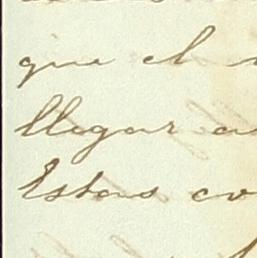 que el
llegar a
Estas co